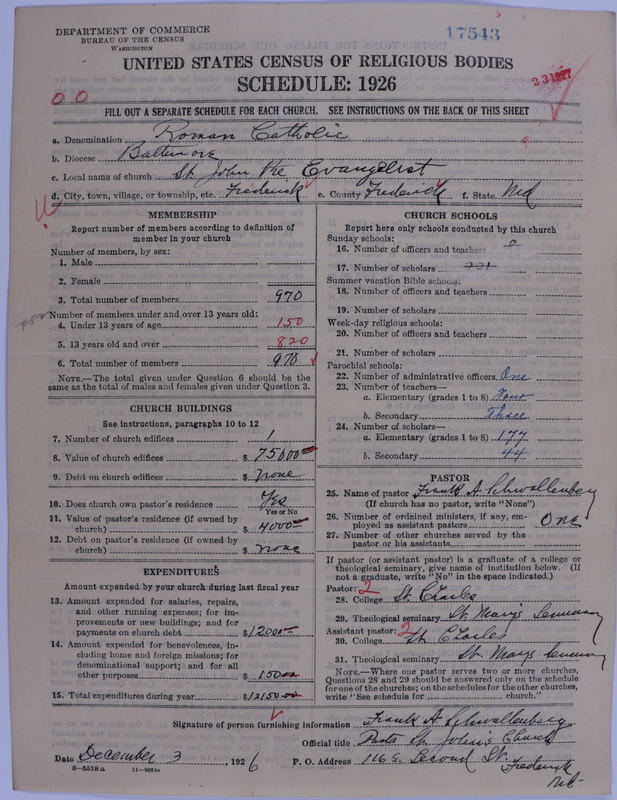 DEPARTMENT OF COMMERCE
BUREAU OF THE CENSUS
WASHINGTON
17543
UNITED STATES CENSUS OF RELIGIOUS BODIES
SCHEDULE: 1926
0 0
FILL OUT A SEPARATE SCHEDULE FOR EACH CHURCH. SEE INSTRUCTIONS ON THE BACK OF THIS SHEET
a. Denomination Roman Catholic
b. Diocese Baltimore
c. Local name of church St. John the Evangelist
d. City, town, village, or township, etc. Frederick e. County Frederick f. State Md
MEMBERSHIP
Report number of members according to definition of member in your church
Number of members, by sex:
1. Male
2. Female
3. Total number of members 970
Number of members under and over 13 years old:
4. Under 13 years of age 150
5. 13 years old and over 820
6. Total number of members 970
NOTE.—The total given under Question 6 should be the same as the total of males and females given under Question 3.
CHURCH BUILDINGS
See instructions, paragraphs 10 to 12
7. Number of church edifices 1
8. Value of church edifices $ 75000
9. Debt on church edifices $ none
10. Does church own pastor's residence Yes
Yes or No
11. Value of pastor's residence (if owned by
church) $ 4000
12. Debt on pastor's residence (if owned by
church) $ none
EXPENDITURES
Amount expended by your church during last fiscal year
13. Amount expended for salaries, repairs,
and other running expenses; for im-
provements or new buildings; and for
payments on church debt $ 12000
14. Amount expended for benevolences, in-
cluding home and foreign missions; for
denominational support; and for all
other purposes $ 150.00
15. Total expenditures during year $ 12150.00
CHURCH SCHOOLS
Report here only schools conducted by this church
Sunday schools:
16. Number of officers and teachers
17. Number of scholars 221
Summer vacation Bible schools:
18. Number of officers and teachers
19. Number of scholars
Week-day religious schools:
20. Number of officers and teachers
21. Number of scholars
Parochial schools:
22. Number of administrative officers One
23. Number of teachers—
a. Elementary (grades 1 to 8) Four
b. Secondary Three
24. Number of scholars—
a. Elementary (grades 1 to 8) 177
b. Secondary 44
PASTOR
25. Name of pastor Frank A Schwallenberg
(If church has no pastor, write "None")
26. Number of ordained ministers, if any, em-
ployed as assistant pastors One
27. Number of other churches served by the
pastor or his assistants
If pastor (or assistant pastor) is a graduate of a college or
theological seminary, give name of institution below. (If
not a graduate, write "No" in the space indicated.)
Pastor: 2
28. College St. Charles
29. Theological seminary St. Mary's Seminary
Assistant pastor: 2
30. College St. Charles
31. Theological seminary St. Mary's Seminary
NOTE.—Where one pastor serves two or more churches,
Questions 28 and 29 should be answered only on the schedule
for one of the churches; on the schedules for the other churches,
write "See schedule for church."
Signature of person furnishing information Frank A. Schwallenberg
Official title Pastor St. John's Church
Date December 3, 1926 P. O. Address 116 E. Second St. Frederick
Md.
8—5518 a